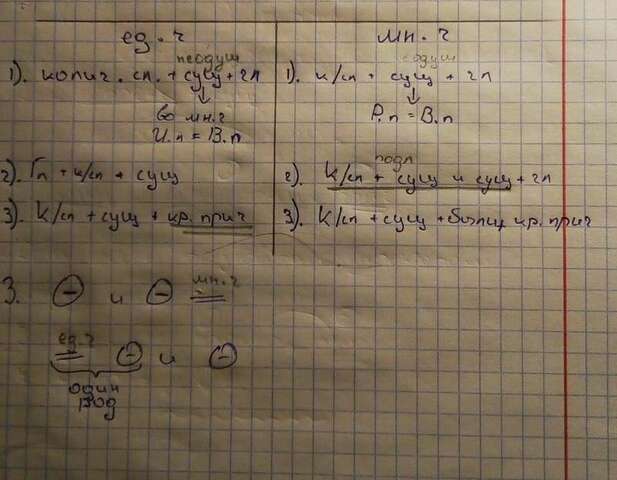 ед. ч
мн. ч
неодуш
1). колич. сл. + сущ + гл
во мн. ч
И.п = В.п
одуш
1). к/сл + сущ + гл
Р.п = В.п
2). Гл + к/сл + сущ
подл
2). к/сл + сущ и сущ + гл
3). К/сл + сущ + кр. прич
3). К/сл + сущ + кр. прич
3. – и – мн. ч
ед. ч – и –
один
род